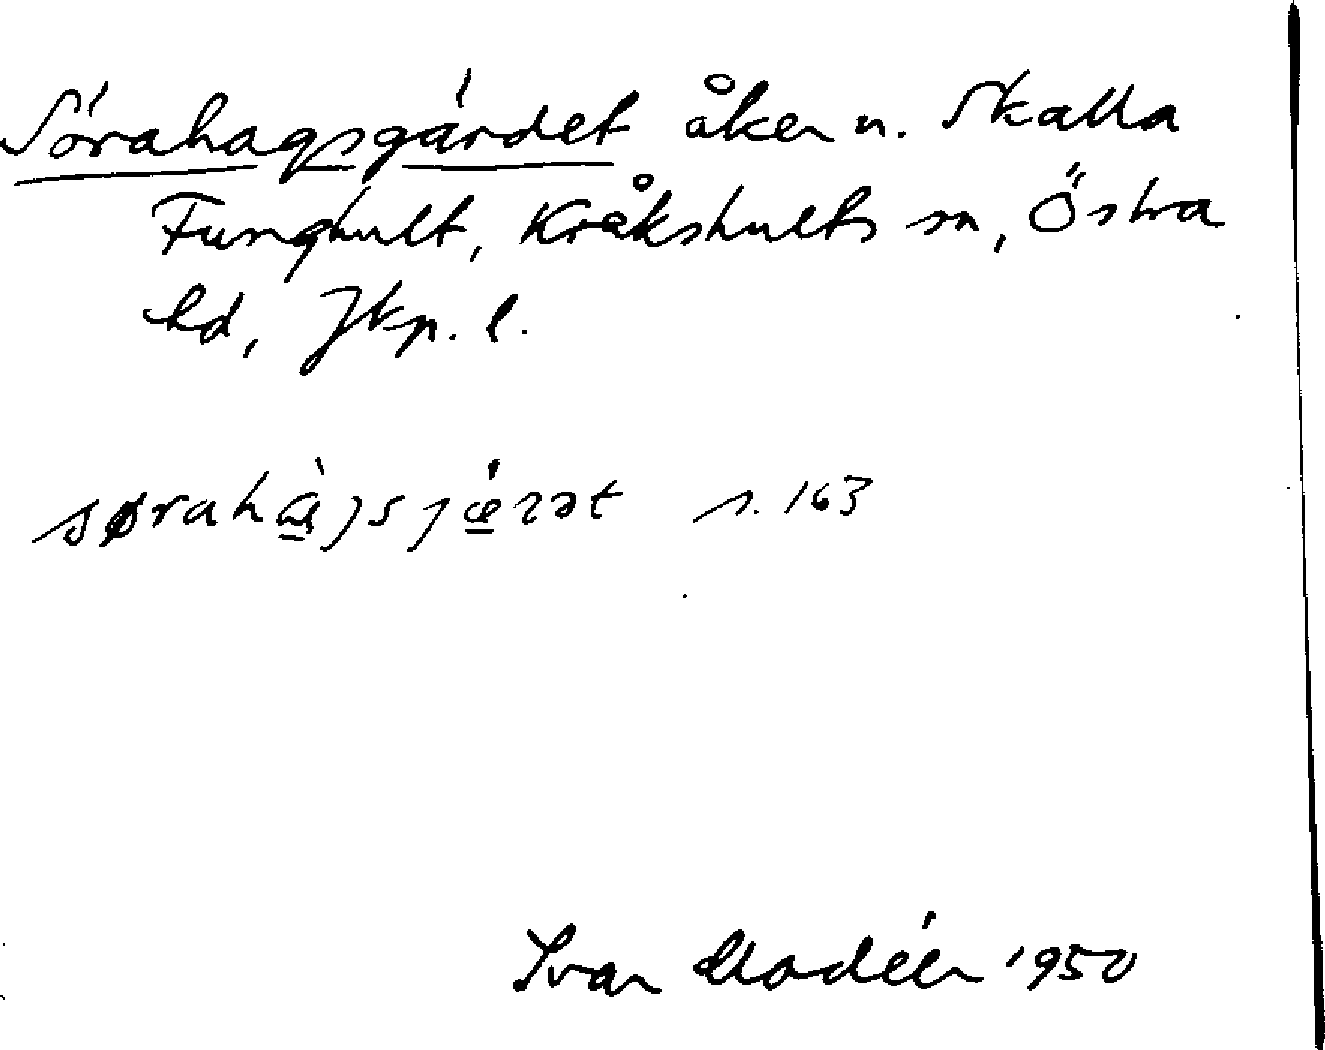 Sörahagsgärdet åker n. Skalla
Funghult, Kråkshults sn, Östra
hd, Jkp. l.
s. 163
Ivar Modéer 1950